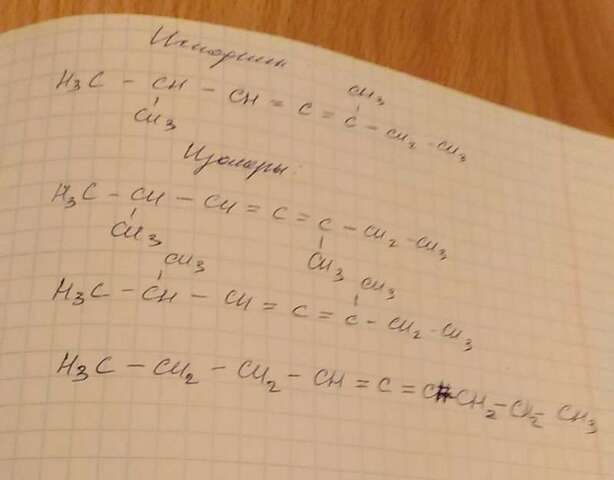 Исходник
CH3
H3C - CH - CH = C = C - CH2 - CH3
CH3
Изомеры:
H3C - CH - CH = C = C - CH2 - CH3
CH3 CH3
CH3 CH3
H3C - CH - CH = C = C - CH2 - CH3
H3C - CH2 - CH2 - CH = C = C CH2 - CH2 CH3